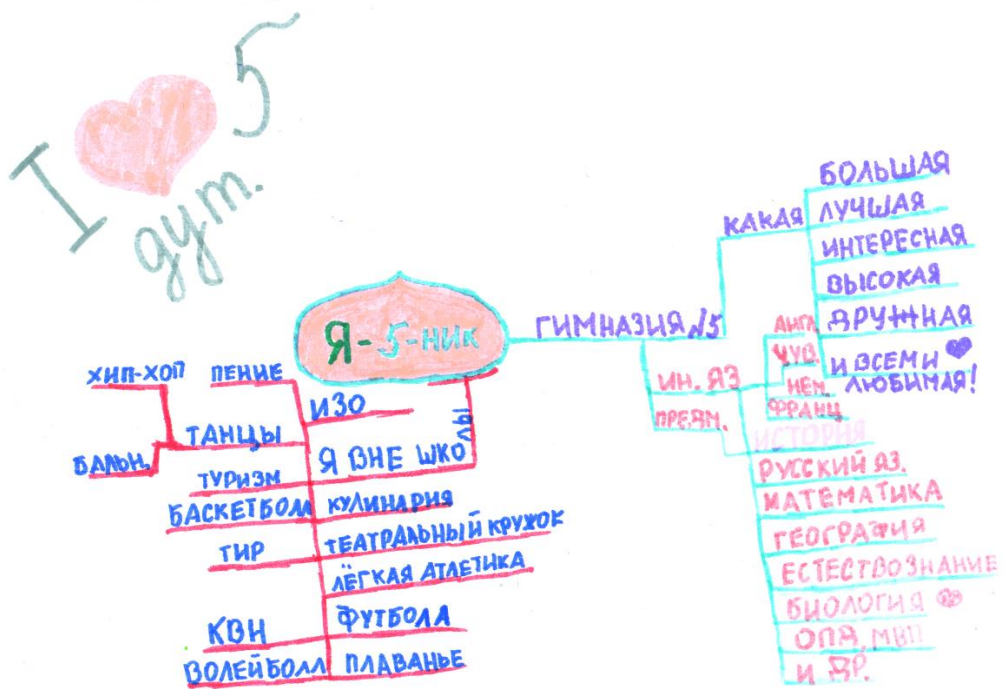 I 5
гут.
Я-5-ник
ГИМНАЗИЯ №5
КАКАЯ
БОЛЬШАЯ
ЛУЧШАЯ
ИНТЕРЕСНАЯ
ВЫСОКАЯ
ДРУЖНАЯ
И ВСЕМИ
ЛЮБИМАЯ!
ИН. ЯЗ
АНГЛ
ЧУВ.
НЕМ.
ФРАНЦ
ПРЕДМ.
ИСТОРИЯ
РУССКИЙ ЯЗ.
МАТЕМАТИКА
ГЕОГРАФИЯ
ЕСТЕСТВОЗНАНИЕ
БИОЛОГИЯ
ОПД, МВП
И ДР.
Я ВНЕ ШКОЛЫ
ПЕНИЕ
ИЗО
ТАНЦЫ
ХИП-ХОП
БАЛЬН.
ТУРИЗМ
БАСКЕТБОЛЛ
КУЛИНАРИЯ
ТИР
ТЕАТРАЛЬНЫЙ КРУЖОК
ЛЁГКАЯ АТЛЕТИКА
КВН
ФУТБОЛЛ
ВОЛЕЙБОЛЛ
ПЛАВАНЬЕ